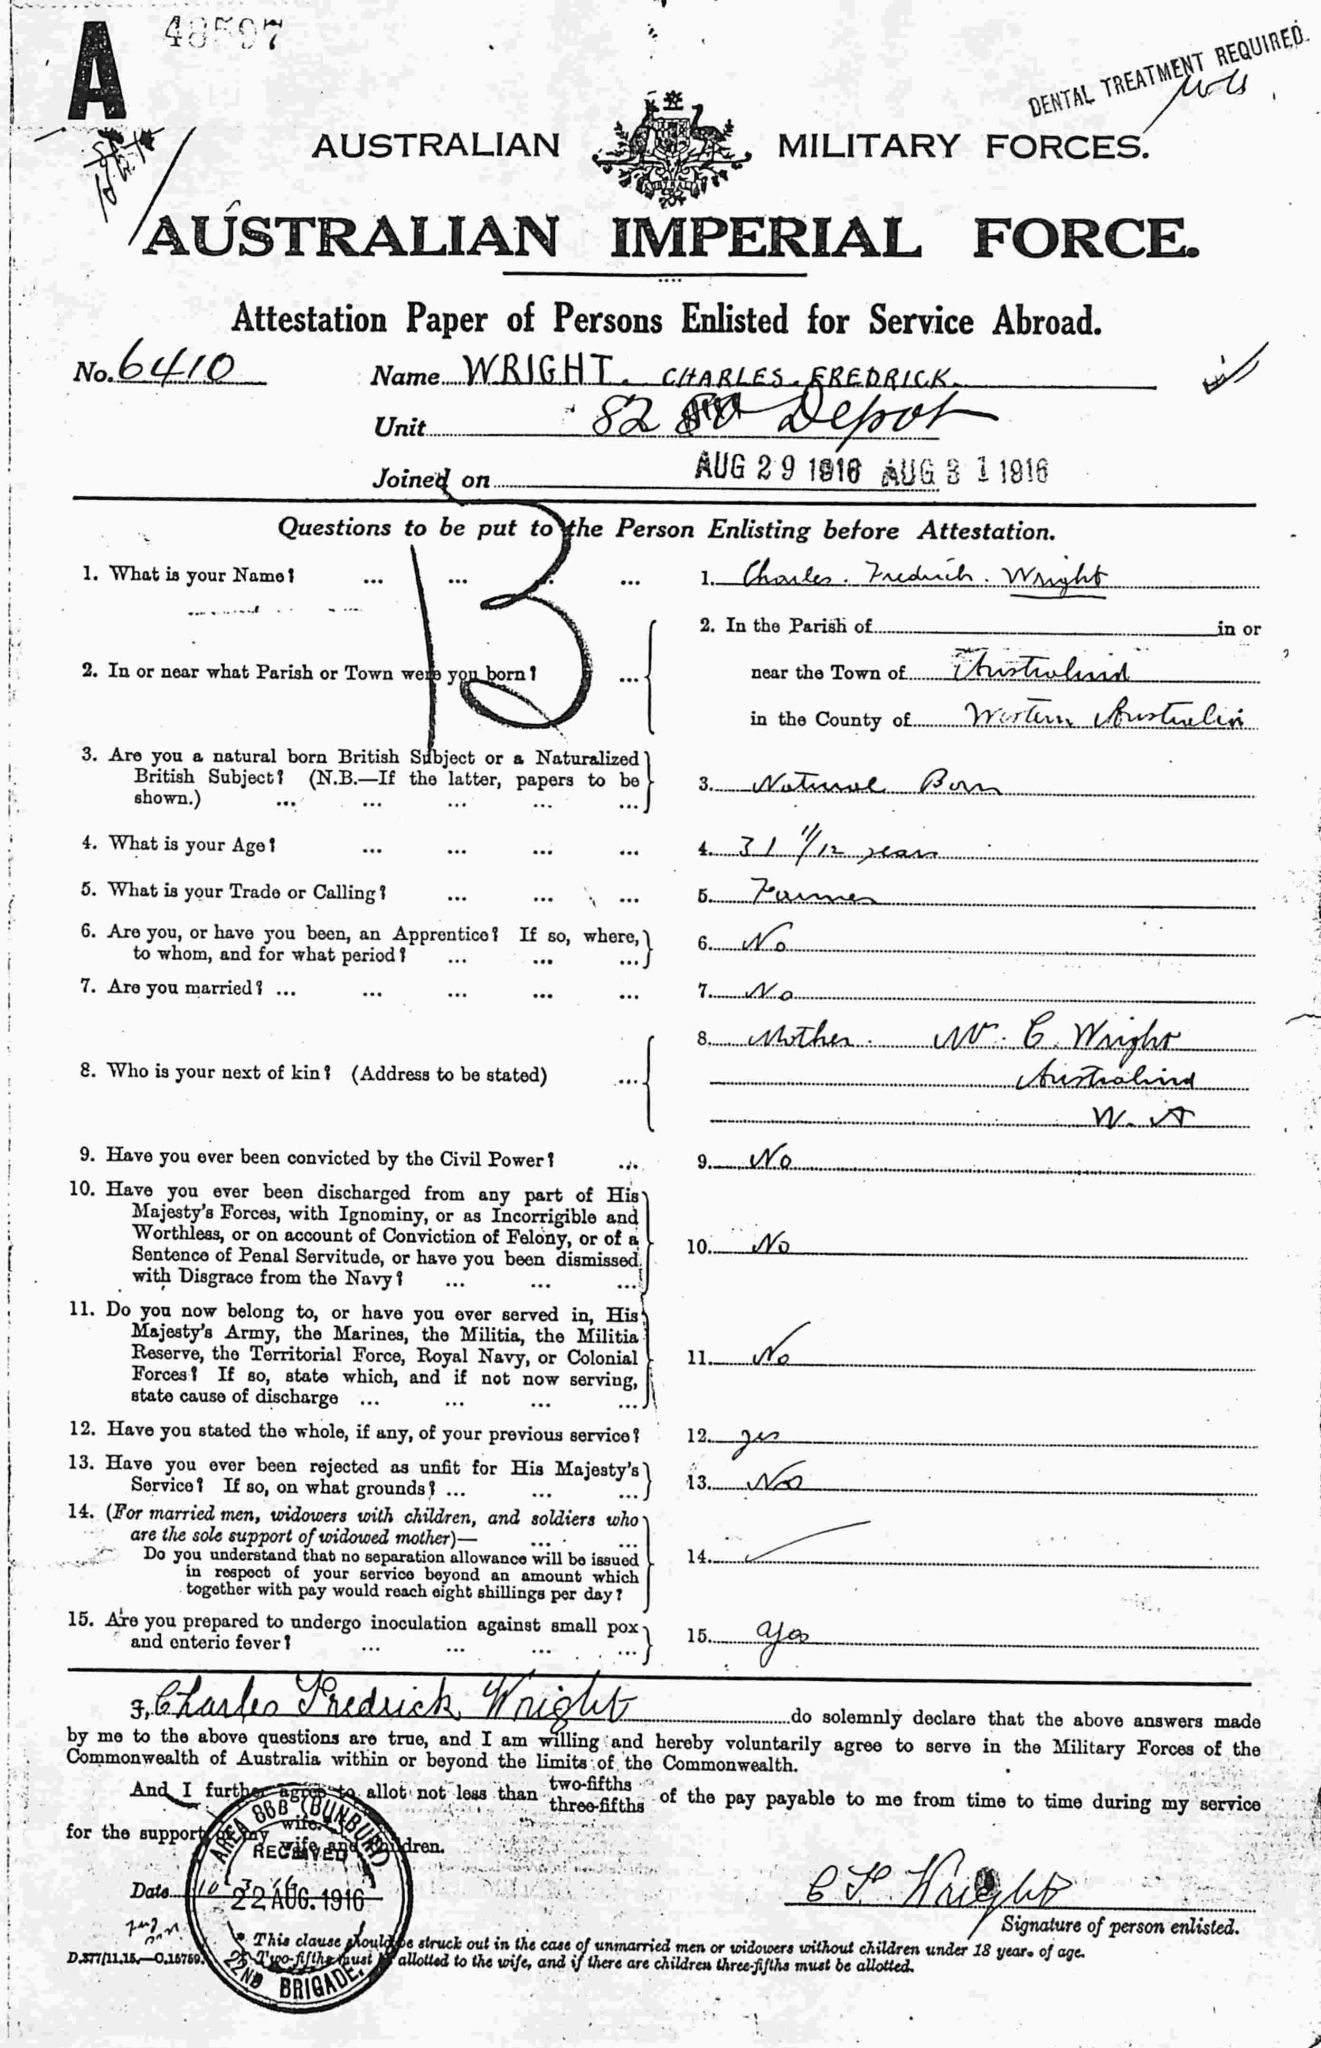 A
48597
DENTAL TREATMENT REQUIRED.
AUSTRALIAN MILITARY FORCES.
AUSTRALIA
AUSTRALIAN IMPERIAL FORCE.
Attestation Paper of Persons Enlisted for Service Abroad.
No. 6410 Name WRIGHT. CHARLES. FREDRICK.
Unit 82 Depot
Joined on AUG 29 1916 AUG 31 1916
B
Questions to be put to the Person Enlisting before Attestation.
1. What is your Name? ... ... ... ... 1. Charles. Fredrick. Wright
2. In or near what Parish or Town were you born? ... 2. In the Parish of in or
near the Town of Australind
in the County of Western Australia
3. Are you a natural born British Subject or a Naturalized
British Subject? (N.B.—If the latter, papers to be
shown.) ... ... ... ... ... 3. Natural Born
4. What is your Age? ... ... ... ... 4. 31 11/12 years
5. What is your Trade or Calling? ... ... ... 5. Farmer
6. Are you, or have you been, an Apprentice? If so, where,
to whom, and for what period? ... ... ... 6. No
7. Are you married? ... ... ... ... ... 7. No
8. Who is your next of kin? (Address to be stated) ... 8. Mother. Mrs. C. Wright
Australind
W. A
9. Have you ever been convicted by the Civil Power? ... 9. No
10. Have you ever been discharged from any part of His
Majesty's Forces, with Ignominy, or as Incorrigible and
Worthless, or on account of Conviction of Felony, or of a
Sentence of Penal Servitude, or have you been dismissed
with Disgrace from the Navy? ... ... ... 10. No
11. Do you now belong to, or have you ever served in, His
Majesty's Army, the Marines, the Militia, the Militia
Reserve, the Territorial Force, Royal Navy, or Colonial
Forces? If so, state which, and if not now serving,
state cause of discharge ... ... ... ... 11. No
12. Have you stated the whole, if any, of your previous service? 12. yes
13. Have you ever been rejected as unfit for His Majesty's
Service? If so, on what grounds? ... ... ... 13. No
14. (For married men, widowers with children, and soldiers who
are the sole support of widowed mother)— ... ...
Do you understand that no separation allowance will be issued
in respect of your service beyond an amount which
together with pay would reach eight shillings per day? 14.
15. Are you prepared to undergo inoculation against small pox
and enteric fever? ... ... ... ... 15. yes
I, Charles Fredrick Wright do solemnly declare that the above answers made
by me to the above questions are true, and I am willing and hereby voluntarily agree to serve in the Military Forces of the
Commonwealth of Australia within or beyond the limits of the Commonwealth.
And I further agree to allot not less than two-fifths three-fifths of the pay payable to me from time to time during my service
for the support of my wife. wife and children.
AREA 86B (BUNBURY)
RECEIVED
22 AUG. 1916
22ND BRIGADE.
Date 10
C F Wright
Signature of person enlisted.
* This clause should be struck out in the case of unmarried men or widowers without children under 18 years of age.
D.577/11.15.—C.15759. Two-fifths must be allotted to the wife, and if there are children three-fifths must be allotted.